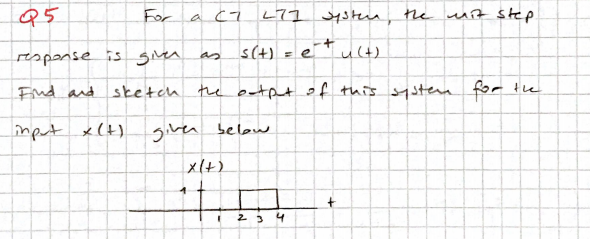 Q5 For a CT LTI system, the unit step
response is given as s(t) = e^-t u(t)
Find and sketch the output of this system for the
input x(t) given below
x(t)
1
1 2 3 4 t